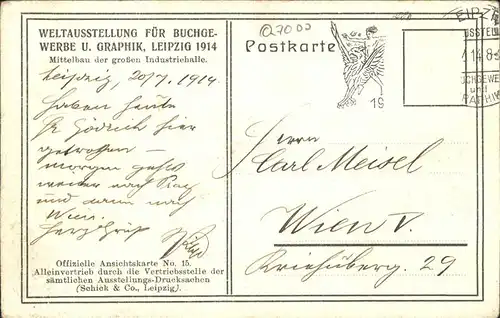 WELTAUSSTELLUNG FÜR BUCHGE-
WERBE U. GRAPHIK, LEIPZIG 1914
Mittelbau der großen Industriehalle.
Leipzig, 20/7. 1914.
haben heute
hier
getroffen –
morgen geht's
weiter nach Prag
und dann nach
Wien.
Offizielle Ansichtskarte No. 15.
Alleinvertrieb durch die Vertriebsstelle der
sämtlichen Ausstellungs-Drucksachen
(Schick & Co., Leipzig).
Q7000
Postkarte
19
EIPZ
SSTELLU
14 8-9
CHGEWE
und
RAPHIK
Herrn
Carl Meisel
Wien V.
Kriehuberg. 29